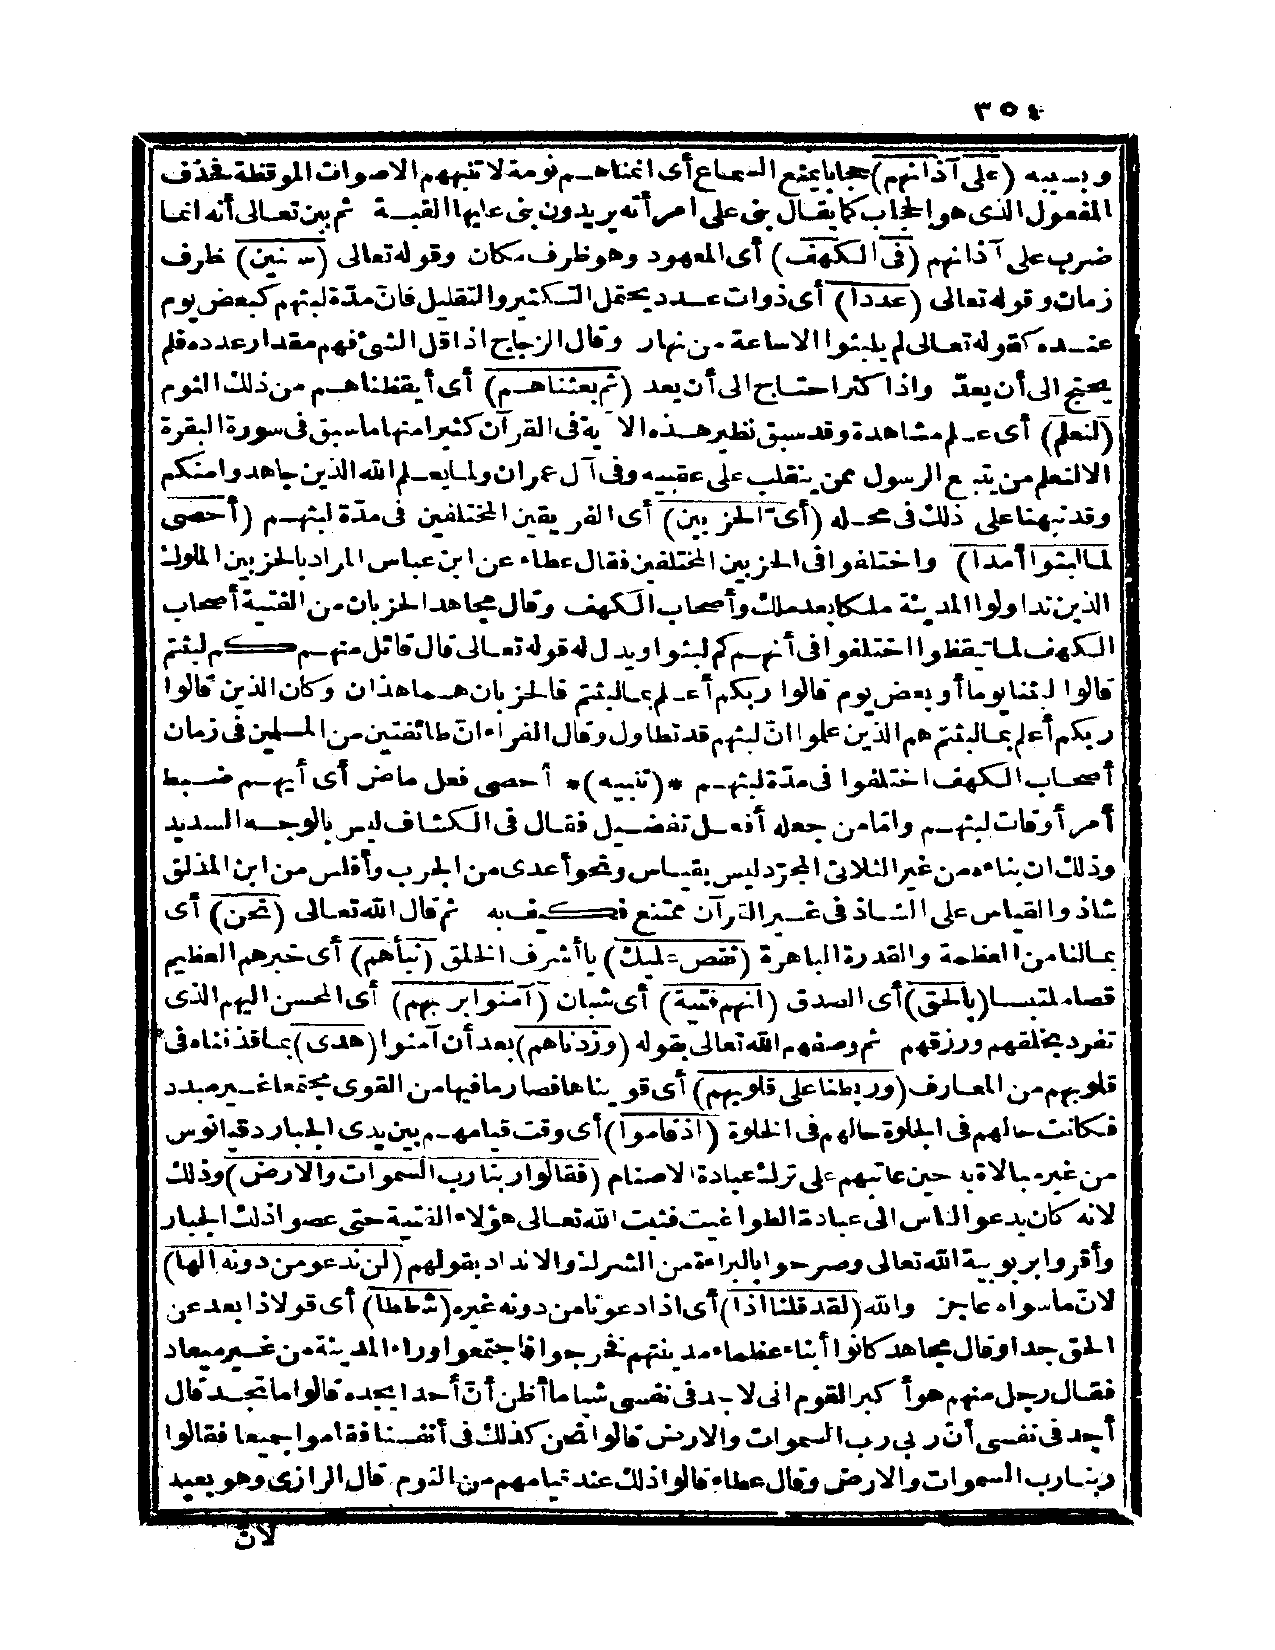 ٣٥٤
وبسببه (على آذانهم) حجابا يمنع السماع أى أنمناهم نومة لا تنبههم الاصوات الموقظة فحذف
المفعول الذى هو الحجاب كما يقال بنى على امرأته يريدون بنى عليها القبة ثم بين تعالى أنه انما
ضرب على آذانهم (فى الكهف) أى المعهود وهو ظرف مكان وقوله تعالى (سنين) ظرف
زمان وقوله تعالى (عددا) أى ذوات عدد يحتمل التكثير والتقليل فانّ مدّة لبثهم كبعض يوم
عنده كقوله تعالى لم يلبثوا الا ساعة من نهار وقال الزجاج اذا قل الشئ فهم مقدار عدده فلم
يحتج الى أن يعدّ واذا كثر احتاج الى أن يعد (ثم بعثناهم) أى أيقظناهم من ذلك النوم
(لنعلم) أى علم مشاهدة وقد سبق نظير هذه الآية فى القرآن كثيرا منها ما سبق فى سورة البقرة
الا لنعلم من يتبع الرسول ممن ينقلب على عقبيه وفى آل عمران ولما يعلم الله الذين جاهدوا منكم
وقد نبهنا على ذلك فى محله (أىّ الحزبين) أى الفريقين المختلفين فى مدّة لبثهم (أحصى
لما لبثوا أمدا) واختلفوا فى الحزبين المختلفين فقال عطاء عن ابن عباس المراد بالحزبين الملوك
الذين تداولوا المدينة ملكا بعد ملك وأصحاب الكهف وقال مجاهد الحزبان من الفتية أصحاب
الكهف لما تيقظوا اختلفوا فى أنهم كم لبثوا ويدل له قوله تعالى قال قائل منهم كم لبثتم
قالوا لبثنا يوما أو بعض يوم قالوا ربكم أعلم بما لبثتم فالحزبان هما هذان وكان الذين قالوا
ربكم أعلم بما لبثتم هم الذين علموا انّ لبثهم قد تطاول وقال الفراء انّ طائفتين من المسلمين فى زمان
أصحاب الكهف اختلفوا فى مدّة لبثهم *(تنبيه)* أحصى فعل ماض أى أيهم ضبط
أمر أوقات لبثهم وامّا من جعله أفعل تفضيل فقال فى الكشاف ليس بالوجه السديد
وذلك ان بناءه من غير الثلاثى المجرّد ليس بقياس ونحو أعدى من الجرب وأفلس من ابن المذلق
شاذ والقياس على الشاذ فى غير القرآن ممتنع فكيف به ثم قال الله تعالى (نحن) أى
بمالنا من العظمة والقدرة الباهرة (نقص عليك) يا أشرف الخلق (نبأهم) أى خبرهم العظيم
قصا ملتبسا (بالحق) أى الصدق (انهم فتية) أى شبان (آمنوا بربهم) أى المحسن اليهم الذى
تفرد بخلقهم ورزقهم ثم وصفهم الله تعالى بقوله (وزدناهم) بعد أن آمنوا (هدى) بما قذفناه فى
قلوبهم من المعارف (وربطنا على قلوبهم) أى قويناها فصار ما فيها من القوى مجتمعا غير مبدد
فكانت حالهم فى الجلوة حالهم فى الخلوة (اذ قاموا) أى وقت قيامهم بين يدى الجبار دقيانوس
من غير مبالاة به حين عاتبهم على ترك عبادة الاصنام (فقالوا ربنا رب السموات والارض) وذلك
لانه كان يدعو الناس الى عبادة الطواغيت فثبت الله تعالى هؤلاء الفتية حتى عصوا ذلك الجبار
وأقروا بربوبية الله تعالى وصرحوا بالبراءة من الشرك والانداد بقولهم (لن ندعو من دونه الها)
لانّ ما سواه عاجز والله (لقد قلنا اذا) أى اذا دعونا من دونه غيره (شططا) أى قولا ذا بعد عن
الحق جدا وقال مجاهد كانوا أبناء عظماء مدينتهم فخرجوا فاجتمعوا وراء المدينة من غير ميعاد
فقال رجل منهم هو أكبر القوم انى لاجد فى نفسى شيأ ما أظن أنّ أحدا يجده قالوا ما تجد قال
أجد فى نفسى أنّ ربى رب السموات والارض قالوا نحن كذلك فى أنفسنا فقاموا جميعا فقالوا
ربنا رب السموات والارض وقال عطاء قالوا ذلك عند قيامهم من النوم قال الرازى وهو بعيد
لانّ